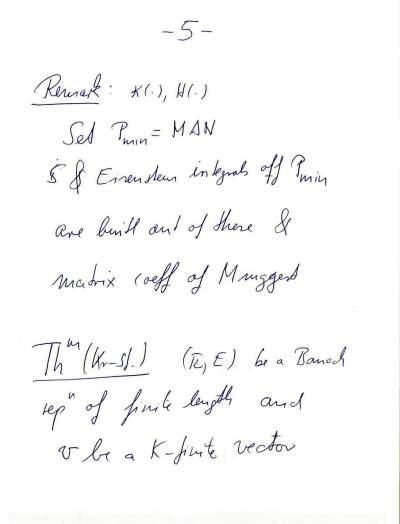 -5-
Remark: K(.), H(.)
Set P_min = MAN
& Eisenstein integrals off P_min
are built out of these &
matrix coeff of M
Th^m (Kr-St.) (π, E) be a Banach
rep^n of finite length and
v be a K-finite vector